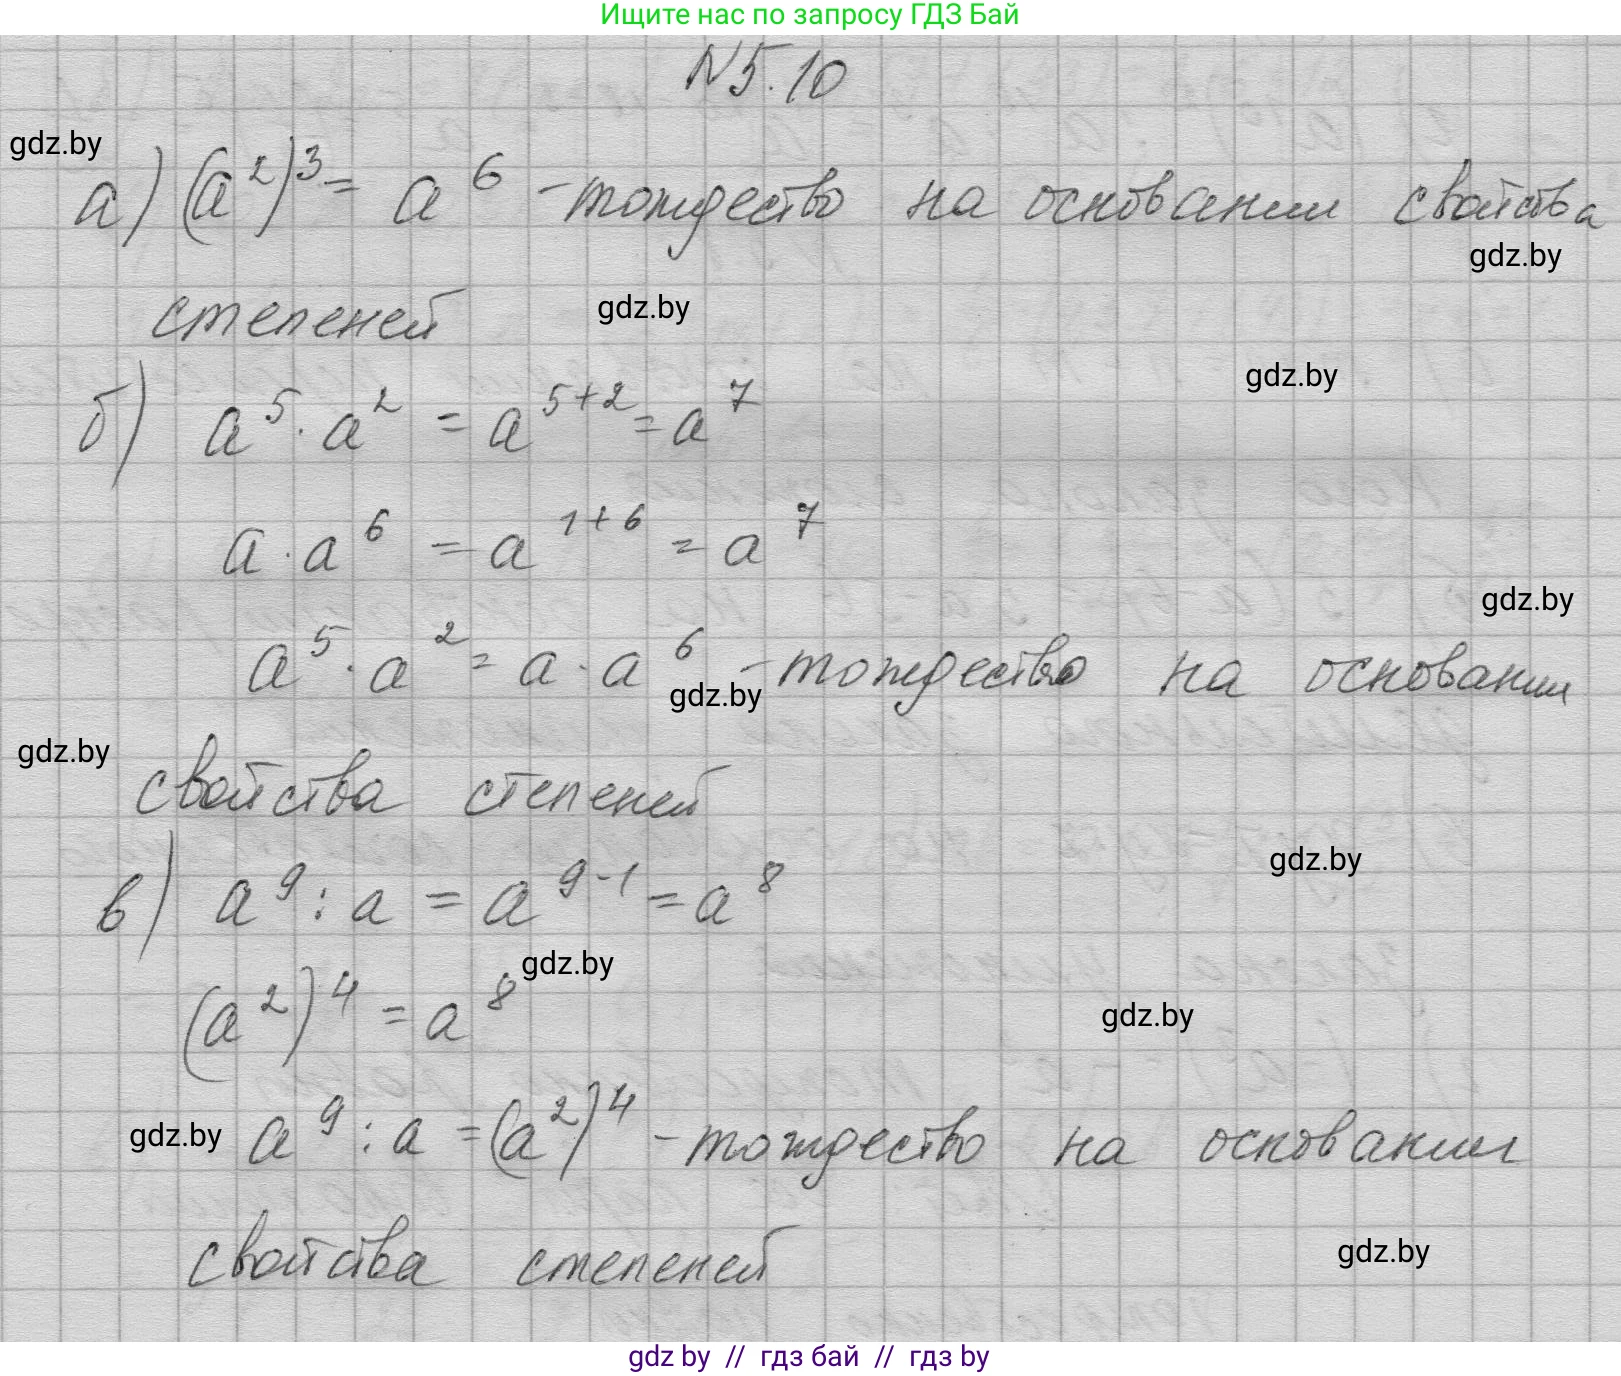 Ищите нас по запросу ГДЗ Бай
N5.10
gdz.by
а) (a²)³ = a⁶ - тождество на основании свойства
gdz.by
степеней gdz.by
gdz.by
б) a⁵ · a² = a⁵⁺² = a⁷
a · a⁶ = a¹⁺⁶ = a⁷
gdz.by
a⁵ · a² = a · a⁶ - тождество на основании
gdz.by
gdz.by
свойства степеней
gdz.by
в) a⁹ : a = a⁹⁻¹ = a⁸
gdz.by
(a²)⁴ = a⁸
gdz.by
gdz.by a⁹ : a = (a²)⁴ - тождество на основании
свойства степеней
gdz.by
gdz by // гдз бай // гдз by